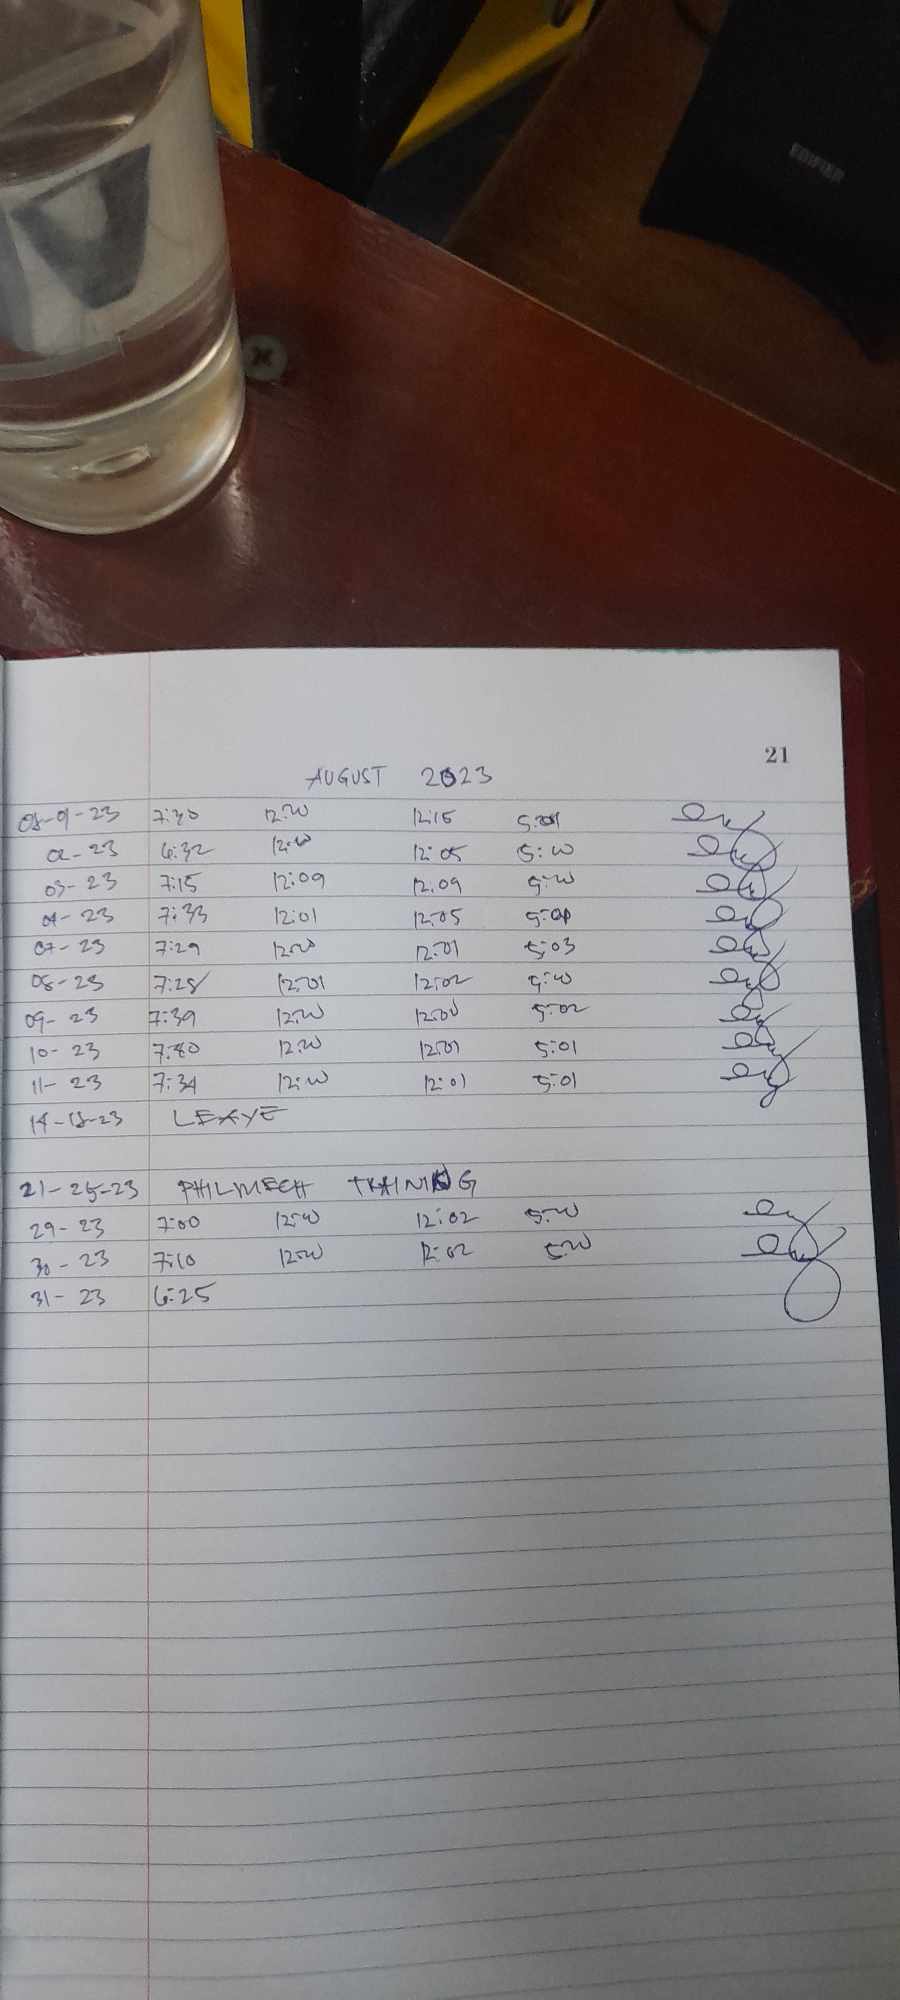 EDIFIER
21
AUGUST 2023
08-01-23 7:30 12:00 12:15 5:01
02-23 6:32 12:00 12:05 5:00
03-23 7:15 12:09 12:09 5:00
04-23 7:33 12:01 12:05 5:04
07-23 7:29 12:00 12:01 5:03
08-23 7:28 12:01 12:02 5:00
09-23 7:39 12:00 12:00 5:02
10-23 12:00 12:01 5:01
11-23 7:34 12:00 12:01 5:01
14-18-23 LEAVE
21-25-23 PHILMECH TRAINING
29-23 7:00 12:00 12:02 5:00
30-23 7:10 12:00 12:02 5:00
31-23 6:25